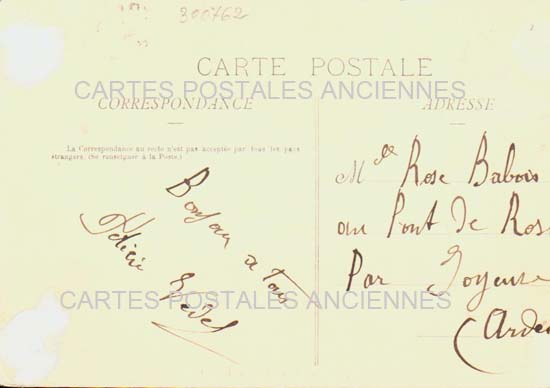 300762
CARTE POSTALE
CARTES POSTALES ANCIENNES
CORRESPONDANCE
ADRESSE
La Correspondance au recto n'est pas acceptée par tous les pays
étrangers. (Se renseigner à la Poste.)
Bonjour a tous
Félicie
Mlle Rose Babois
au Pont de Ros
Par Joyeuse
(Arde
CARTES POSTALES ANCIENNES